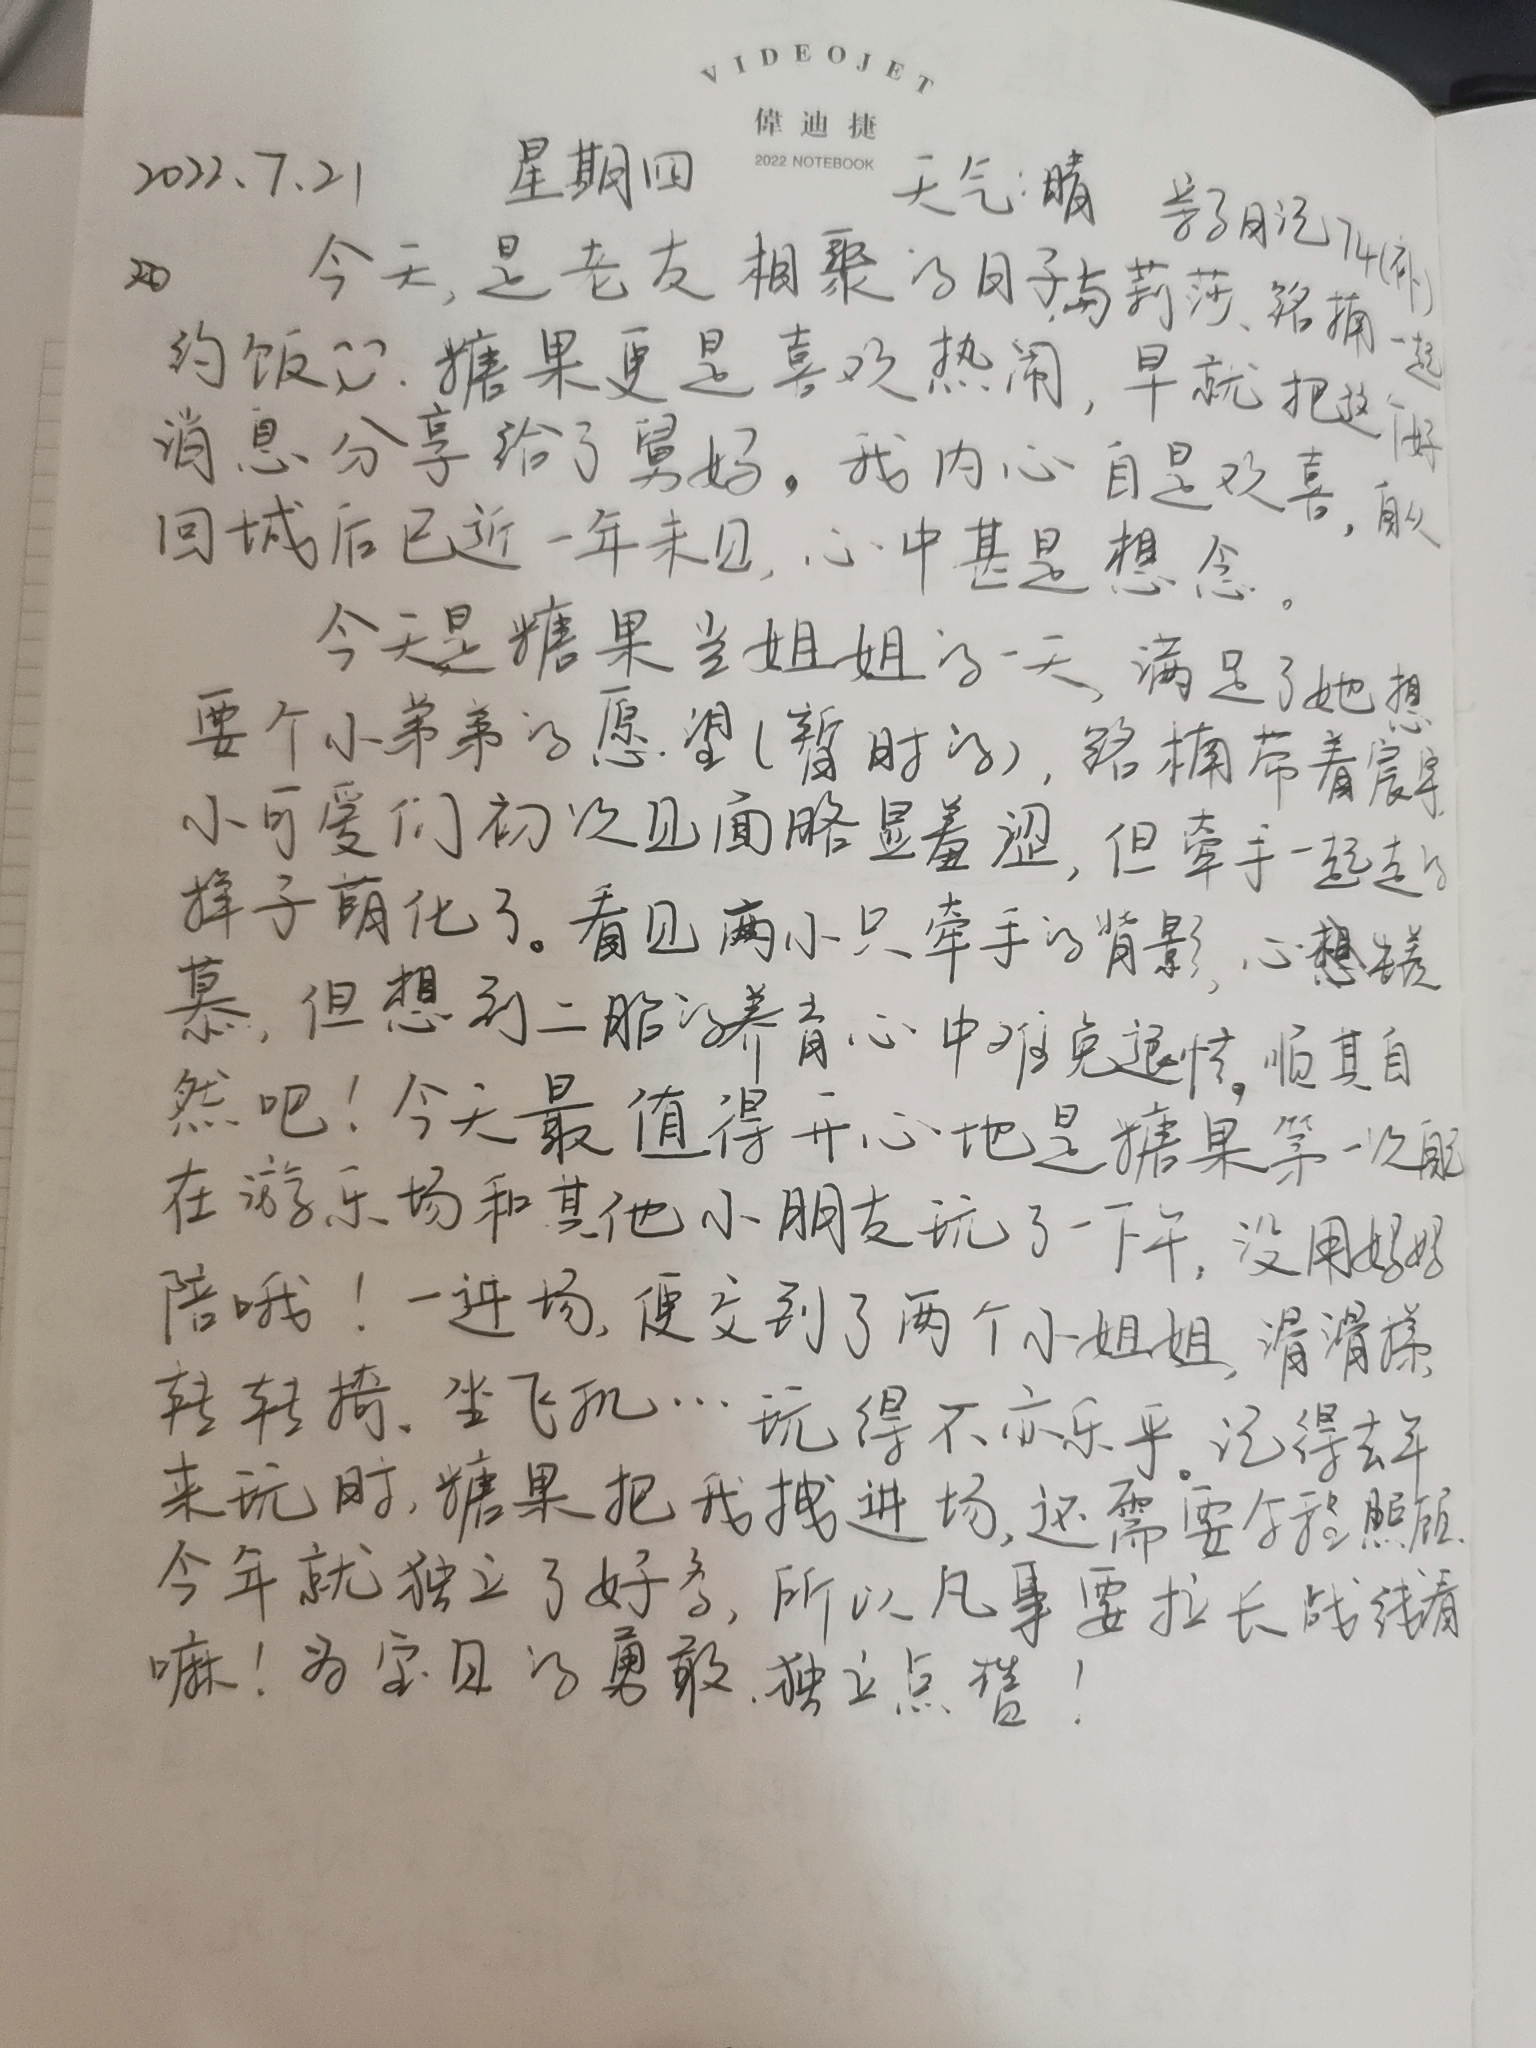 VIDEOJET
偉迪捷
2022 NOTEBOOK
2022.7.21 星期四 天气:晴 亲子日记74(补)
20 今天,是老友相聚的日子,与莉莎、铭楠一起
约饭。糖果更是喜欢热闹,早就把这个好
消息分享给了舅妈。我内心自是欢喜,自从
回城后已近一年未见,心中甚是想念。
今天是糖果当姐姐的一天,满足了她想
要个小弟弟的愿望(暂时的),铭楠带着宸宇,
小可爱们初次见面略显羞涩,但牵手一起走的
样子萌化了。看见两小只牵手的背影,心想羡
慕,但想到二胎的养育心中难免退怯。顺其自
然吧!今天最值得开心地是糖果第一次自己
在游乐场和其他小朋友玩了一下午,没用妈妈
陪哦!一进场,便交到了两个小姐姐,滑滑梯、
转转椅、坐飞机…玩得不亦乐乎。记得去年
来玩时,糖果把我拽进场,还需要全程照顾.
今年就独立了好多,所以凡事要拉长战线看
嘛!为宝贝的勇敢、独立点赞!